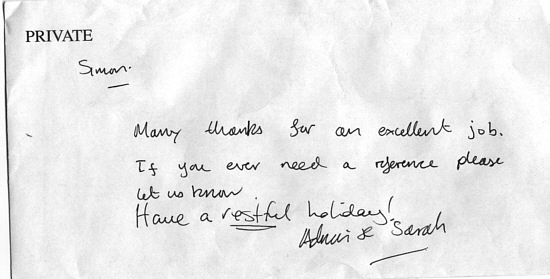 PRIVATE
Simon.
Many thanks for an excellent job.
If you ever need a reference please
let us know.
Have a restful holiday!
& Sarah